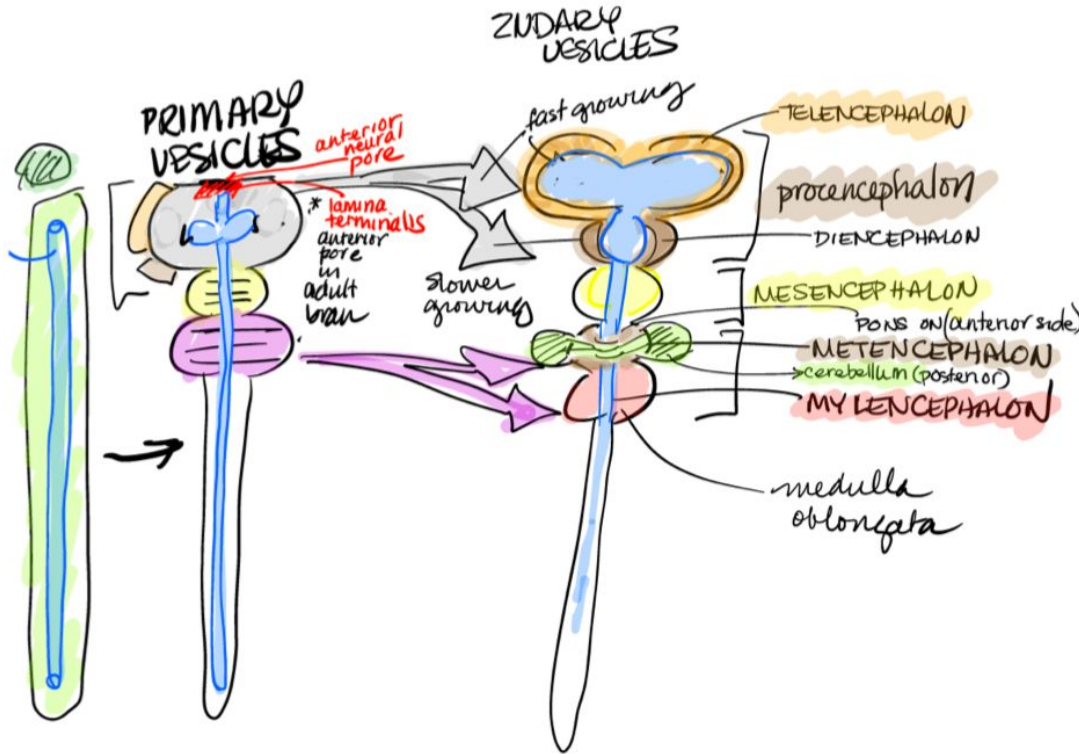 2NDARY
VESICLES
PRIMARY
VESICLES
anterior
neural
pore
* lamina
terminalis
anterior
pore
in
adult
brain
fast growing
slower
growing
TELENCEPHALON
procencephalon
DIENCEPHALON
MESENCEPHALON
PONS ON (anterior side)
METENCEPHALON
cerebellum (posterior)
MYLENCEPHALON
medulla
oblongata